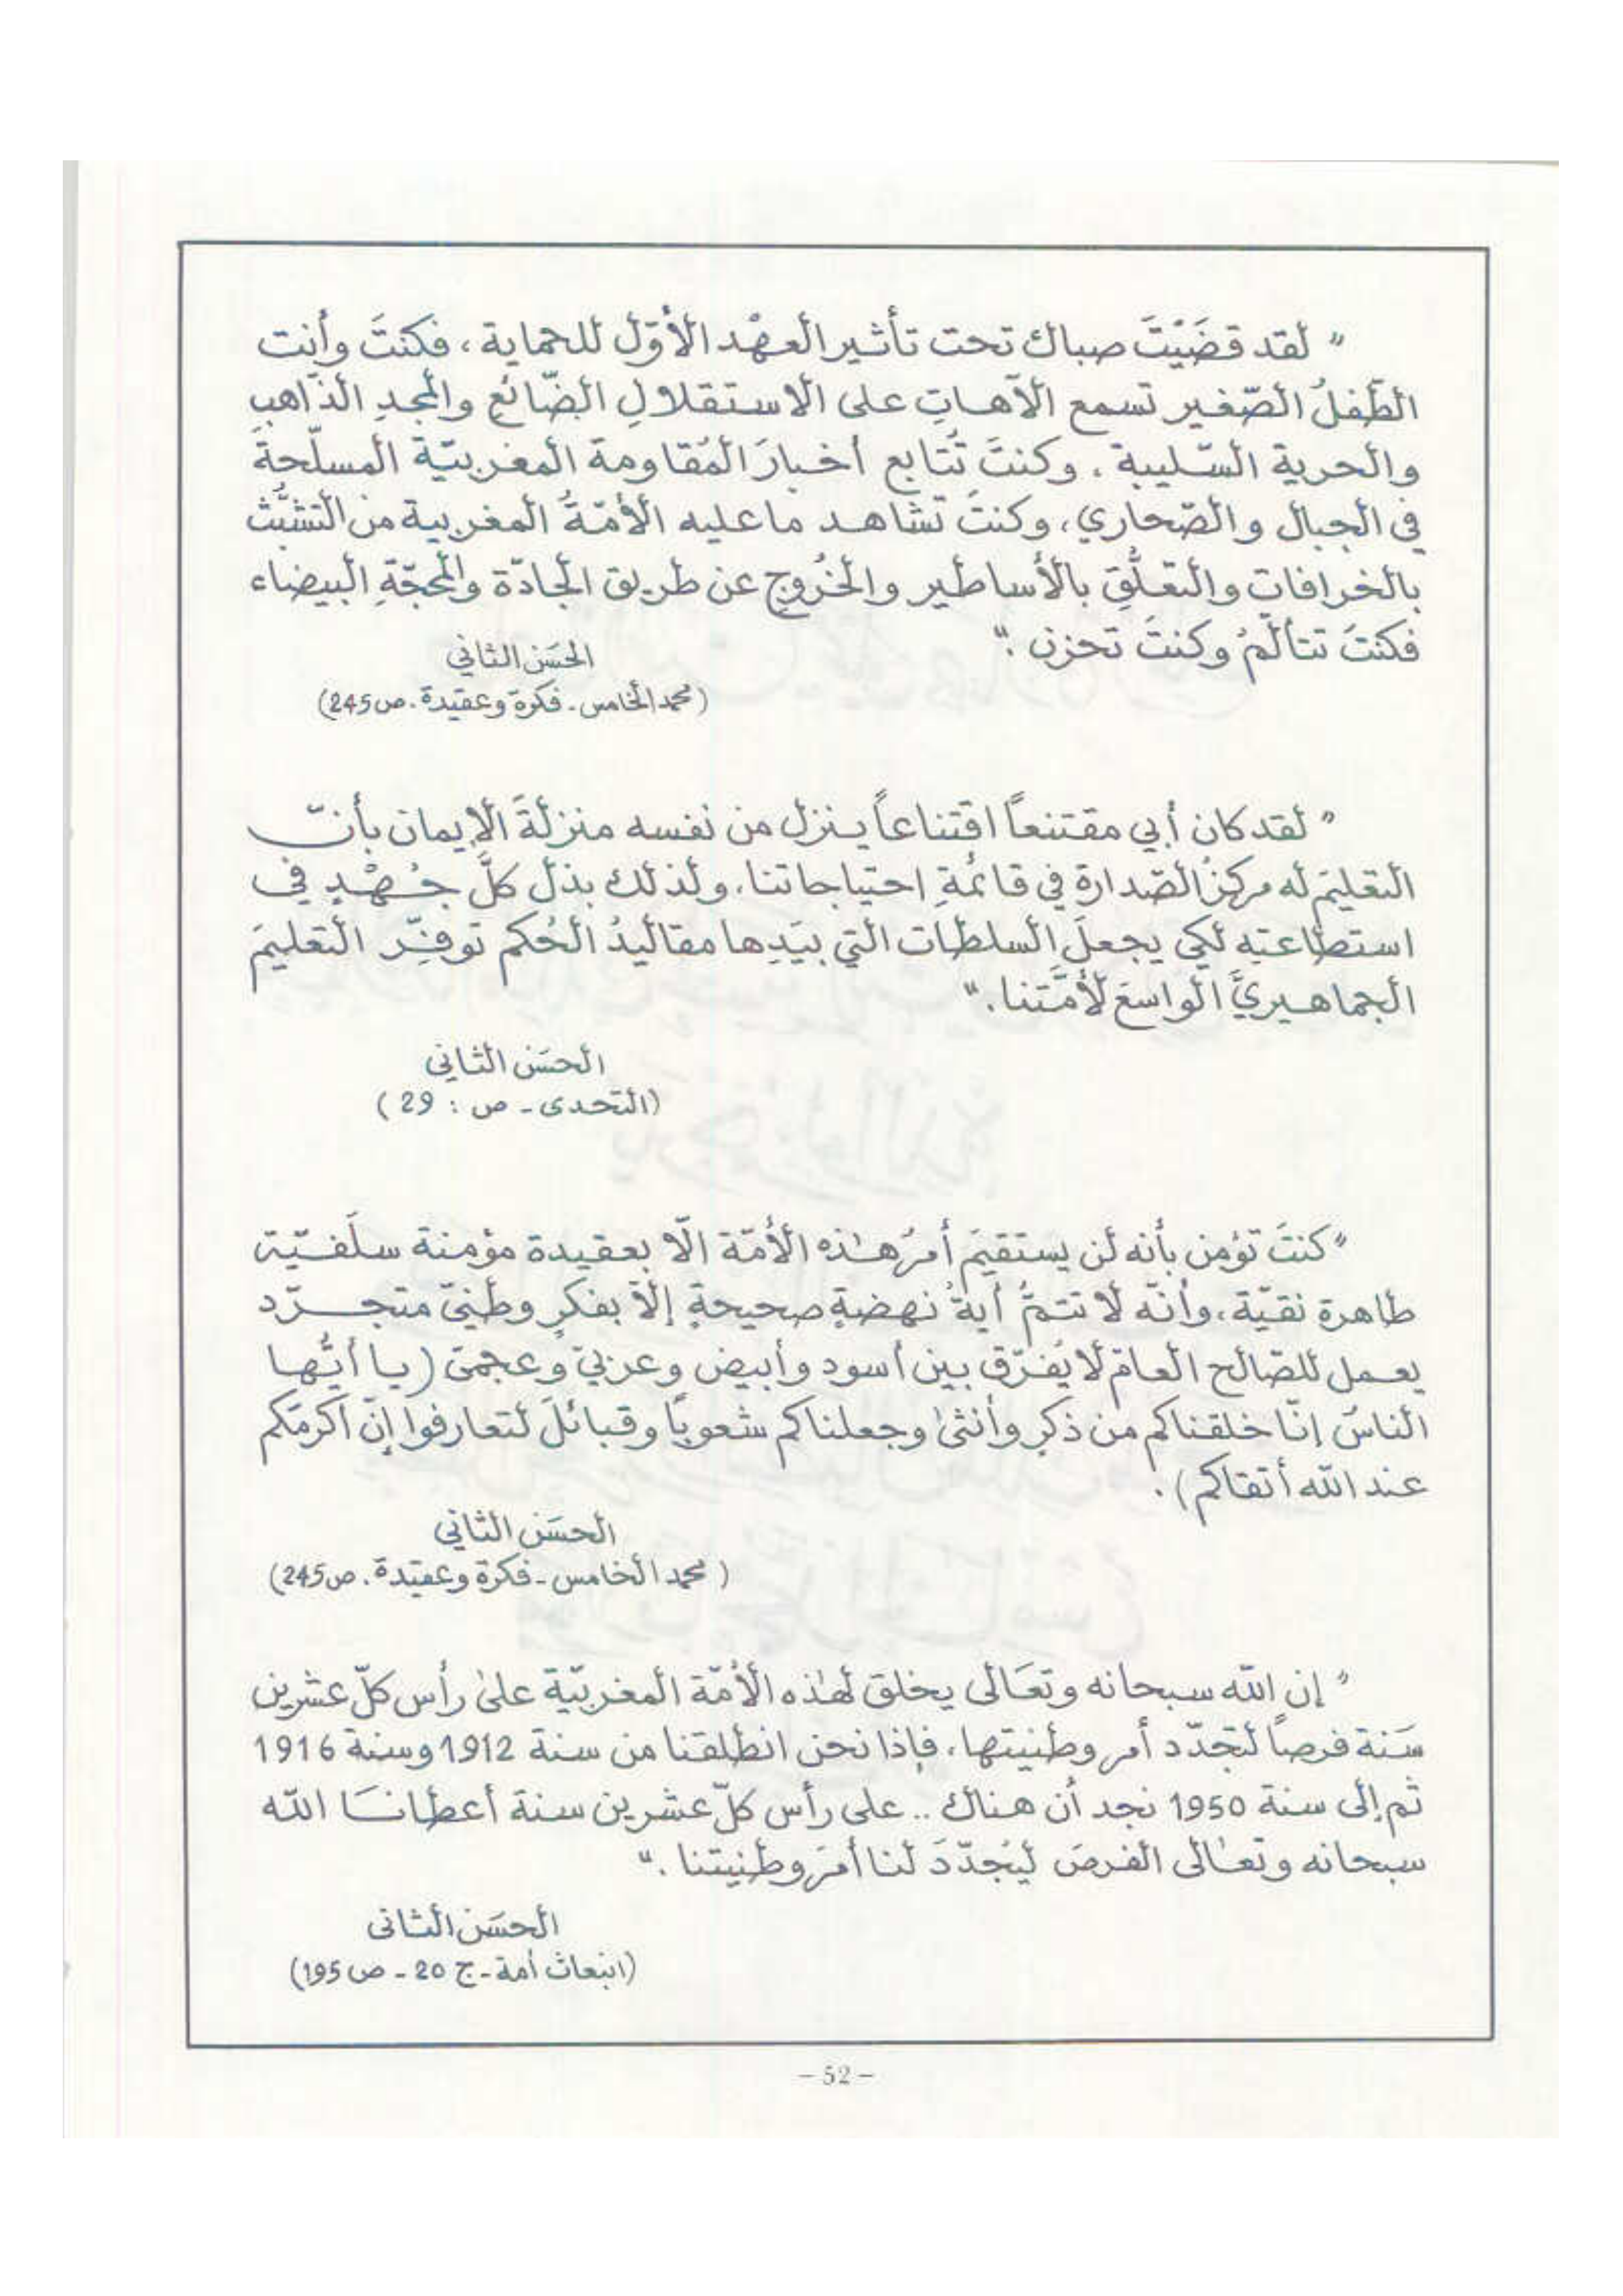 " لقد قضَيْتَ صباك تحت تأثير العهْد الأوّل للحماية، فكنتَ وأنت
الطّفلُ الصّغير تسمع الآهاتِ على الاستقلالِ الضّائع والمجدِ الذّاهبِ
والحرية السّليبة. وكنتَ تُتابع أخبارَ المُقاومة المغربيّة المسلّحة
في الجبال والصّحاري، وكنتَ تشاهد ما عليه الأمّةُ المغربية من التشبُّث
بالخرافات والتعلُّقِ بالأساطير والخُروجِ عن طريق الجادّة والمحجّةِ البيضاء
فكنتَ تتألّمُ وكنتَ تحزن ."
الحسَن الثاني
(محمد الخامس - فكرة وعقيدة. ص 245)
" لقد كان أبي مقتنعاً اقتناعاً ينزل من نفسه منزلةَ الإيمان بأنّ
التعليمَ له مركزُ الصّدارة في قائمةِ احتياجاتنا، ولذلك بذل كلَّ جُهْدٍ في
استطاعتِه لكي يجعلَ السلطات التي بيَدِها مقاليدُ الحُكم توفّر التعليمَ
الجماهيريَّ الواسعَ لأمَّتنا."
الحسَن الثاني
(التحدى - ص : 29)
" كنتَ تؤمن بأنه لن يستقيمَ أمرُ هذه الأمّة الّا بعقيدة مؤمنة سلَفيّة
طاهرة نقيّة، وأنّه لا تتمُّ أيةُ نهضةٍ صحيحةٍ إلّا بفكرٍ وطنيّ متجرّد
يعمل للصّالح العامّ لا يُفرّق بين أسود وأبيض وعربيّ وعجميّ (يا أيُّها
الناسُ إنّا خلقناكم من ذكرٍ وأنثىٰ وجعلناكم شعوبًا وقبائلَ لتعارفوا إنّ أكرمَكم
عند الله أتقاكم).
الحسَن الثاني
(محمد الخامس - فكرة وعقيدة. ص 245)
" إن الله سبحانه وتعَالى يخلق لهٰذه الأمّة المغربيّة علىٰ رأس كلّ عشرين
سَنة فرصاً لتجدّد أمر وطنيتها، فإذا نحن انطلقنا من سنة 1912 وسنة 1916
ثم إلى سنة 1950 نجد أن هناك .. على رأس كلّ عشرين سنة أعطانَا الله
سبحانه وتعٰالى الفرصَ ليُجدّدَ لنا أمرَ وطنيتنا ."
الحسَن الثانى
(انبعاث أمة - ج 20 - ص 195)
– 52 –